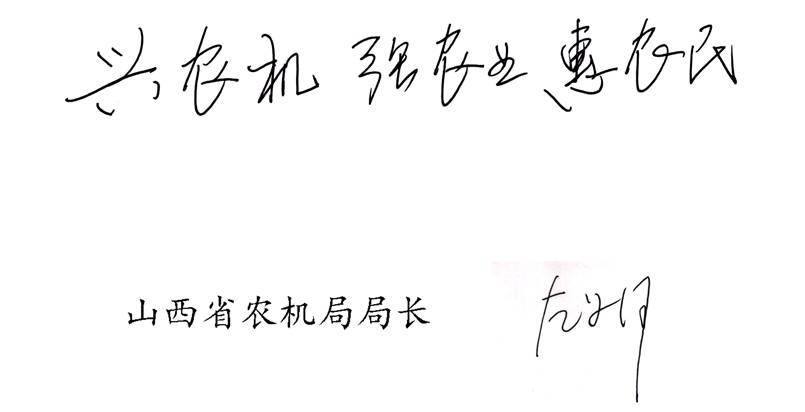 兴农机 强农业 惠农民
山西省农机局局长